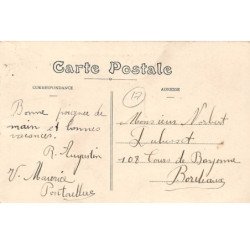 Carte Postale
CORRESPONDANCE
ADRESSE
17
Bonne poignée de
main et bonnes
vacances.
R. Augustin
V.
Monsieur Norbert
108 Cours de Bayonne
Bordeaux